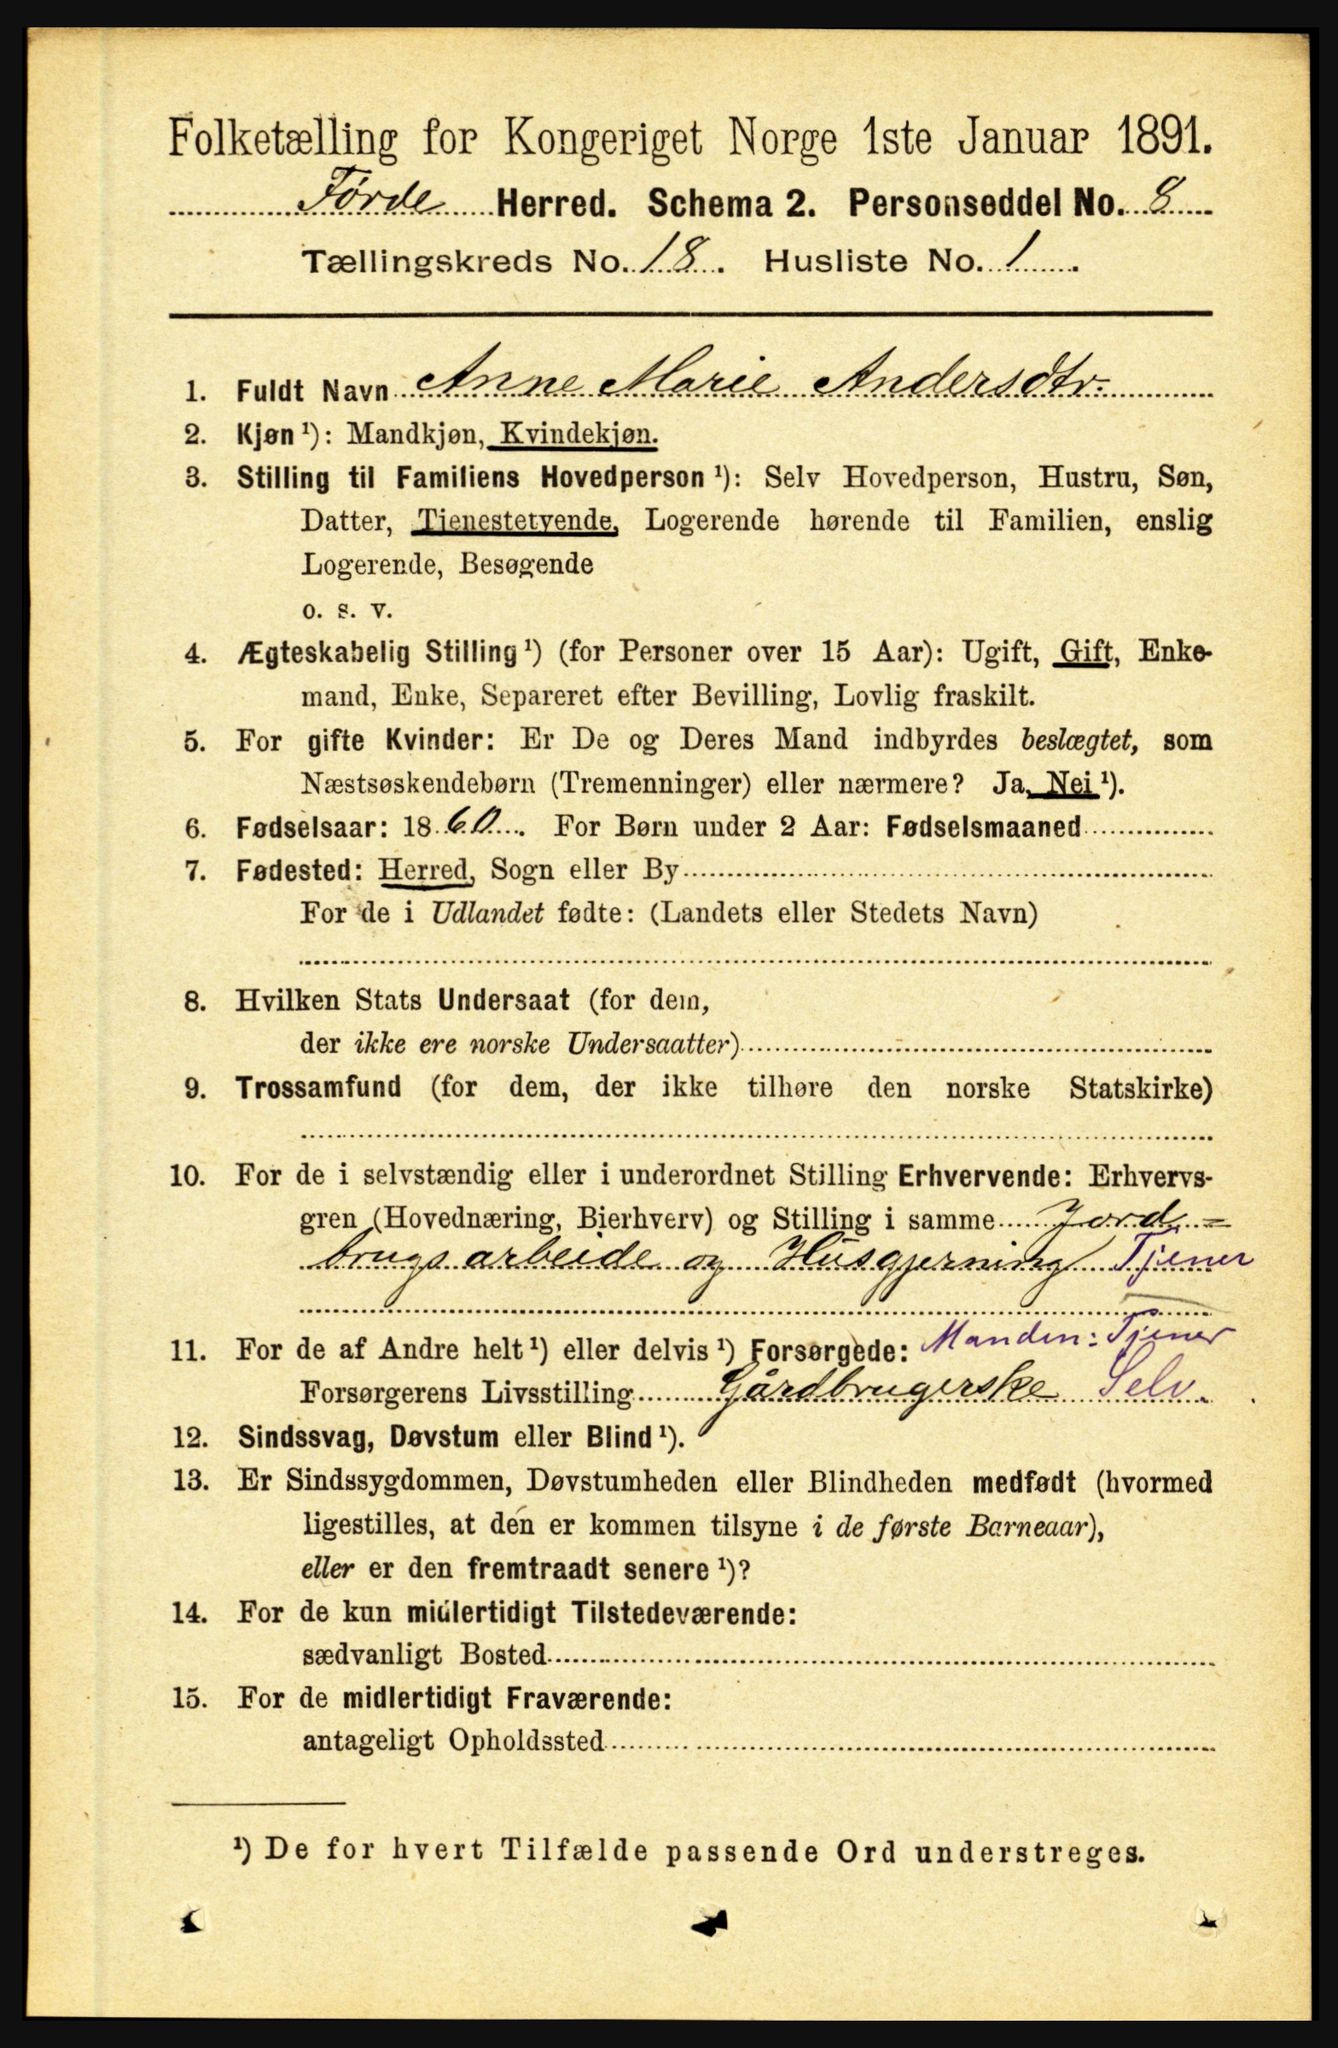 Folketælling for Kongeriget Norge 1ste Januar 1891.
Førde Herred. Schema 2. Personseddel No. 8
Tællingskreds No. 18. Husliste No. 1.
1. Fuldt Navn Anne Marie Andersdtr.
2. Kjøn ¹): Mandkjøn, Kvindekjøn.
3. Stilling til Familiens Hovedperson ¹): Selv Hovedperson, Hustru, Søn,
Datter, Tjenestetyende, Logerende hørende til Familien, enslig
Logerende, Besøgende
o. s. v.
4. Ægteskabelig Stilling ¹) (for Personer over 15 Aar): Ugift, Gift, Enke-
mand, Enke, Separeret efter Bevilling, Lovlig fraskilt.
5. For gifte Kvinder: Er De og Deres Mand indbyrdes beslægtet, som
Næstsøskendebørn (Tremenninger) eller nærmere? Ja, Nei ¹).
6. Fødselsaar: 1860. For Børn under 2 Aar: Fødselsmaaned
7. Fødested: Herred, Sogn eller By
For de i Udlandet fødte: (Landets eller Stedets Navn)
8. Hvilken Stats Undersaat (for dem,
der ikke ere norske Undersaatter)
9. Trossamfund (for dem, der ikke tilhøre den norske Statskirke)
10. For de i selvstændig eller i underordnet Stilling Erhvervende: Erhvervs-
gren (Hovednæring, Bierhverv) og Stilling i samme Jord-
brugsarbeide og Husgjerning Tjener
11. For de af Andre helt ¹) eller delvis ¹) Forsørgede: Manden: Tjener
Forsørgerens Livsstilling Gårdbrugerske Selv.
12. Sindssvag, Døvstum eller Blind ¹).
13. Er Sindssygdommen, Døvstumheden eller Blindheden medfødt (hvormed
ligestilles, at den er kommen tilsyne i de første Barneaar),
eller er den fremtraadt senere ¹)?
14. For de kun midlertidigt Tilstedeværende:
sædvanligt Bosted
15. For de midlertidigt Fraværende:
antageligt Opholdssted
¹) De for hvert Tilfælde passende Ord understreges.